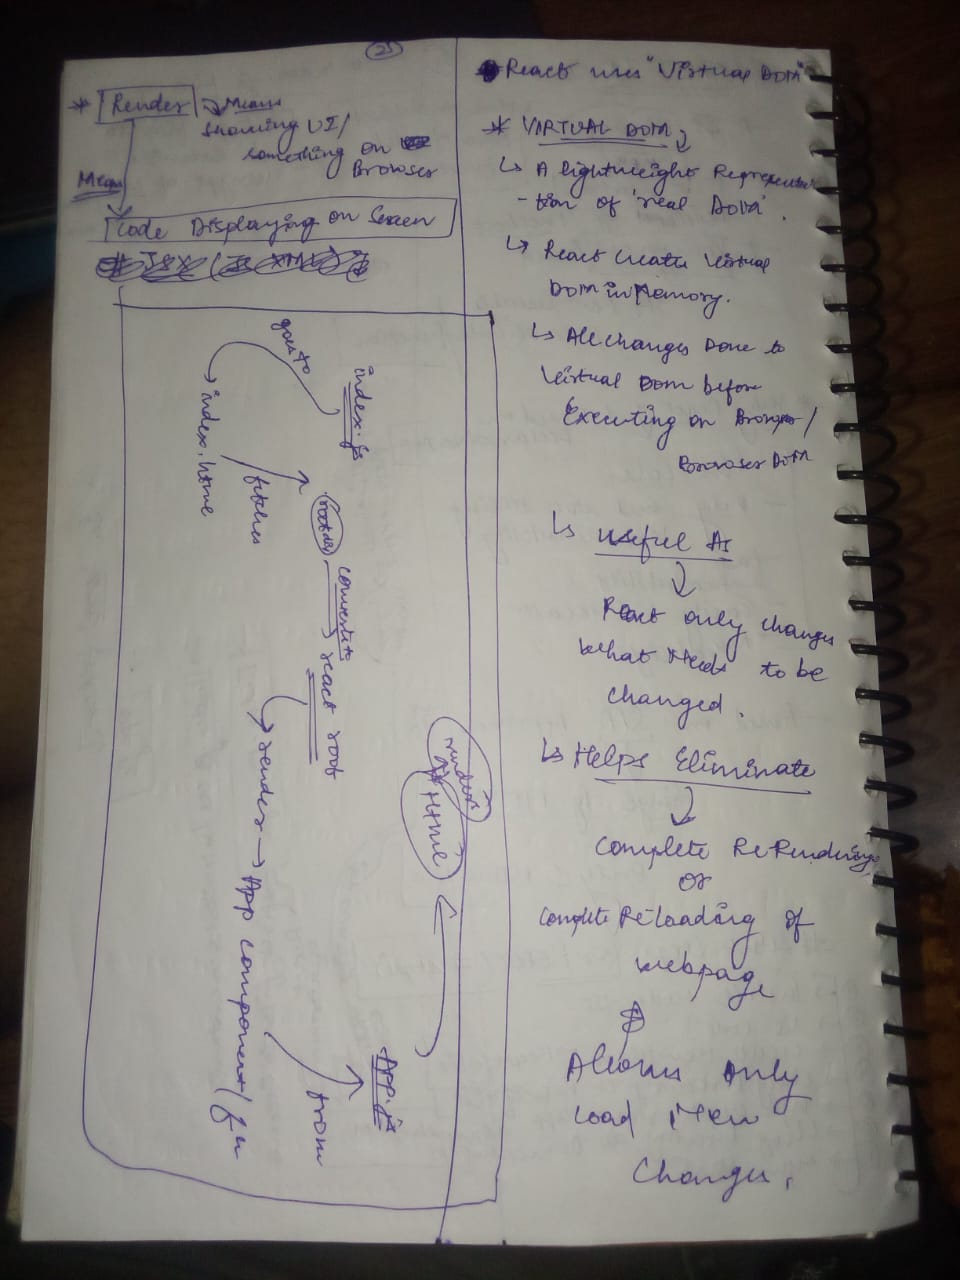 25
* Render → Means
showing UI/
something on
Browser
Means
Code Displaying on Screen
goes to
index.js
index.html
fetches
root div
converts to
react root
render → App component/fn
from
App.js
renders
HTML
React uses "Virtual DOM"
* VIRTUAL DOM
↳ A lightweight Representa
-tion of 'real DOM'.
↳ React create virtual
DOM in Memory.
↳ All changes Done to
Virtual DOM before
Executing on Browser/
Browser DOM
↳ Useful As
React only changes
what Needs to be
changed.
↳ Helps Eliminate
Complete Re Rendering
or
Complete Re-loading of
webpage
Allows Only
load New
Changes.